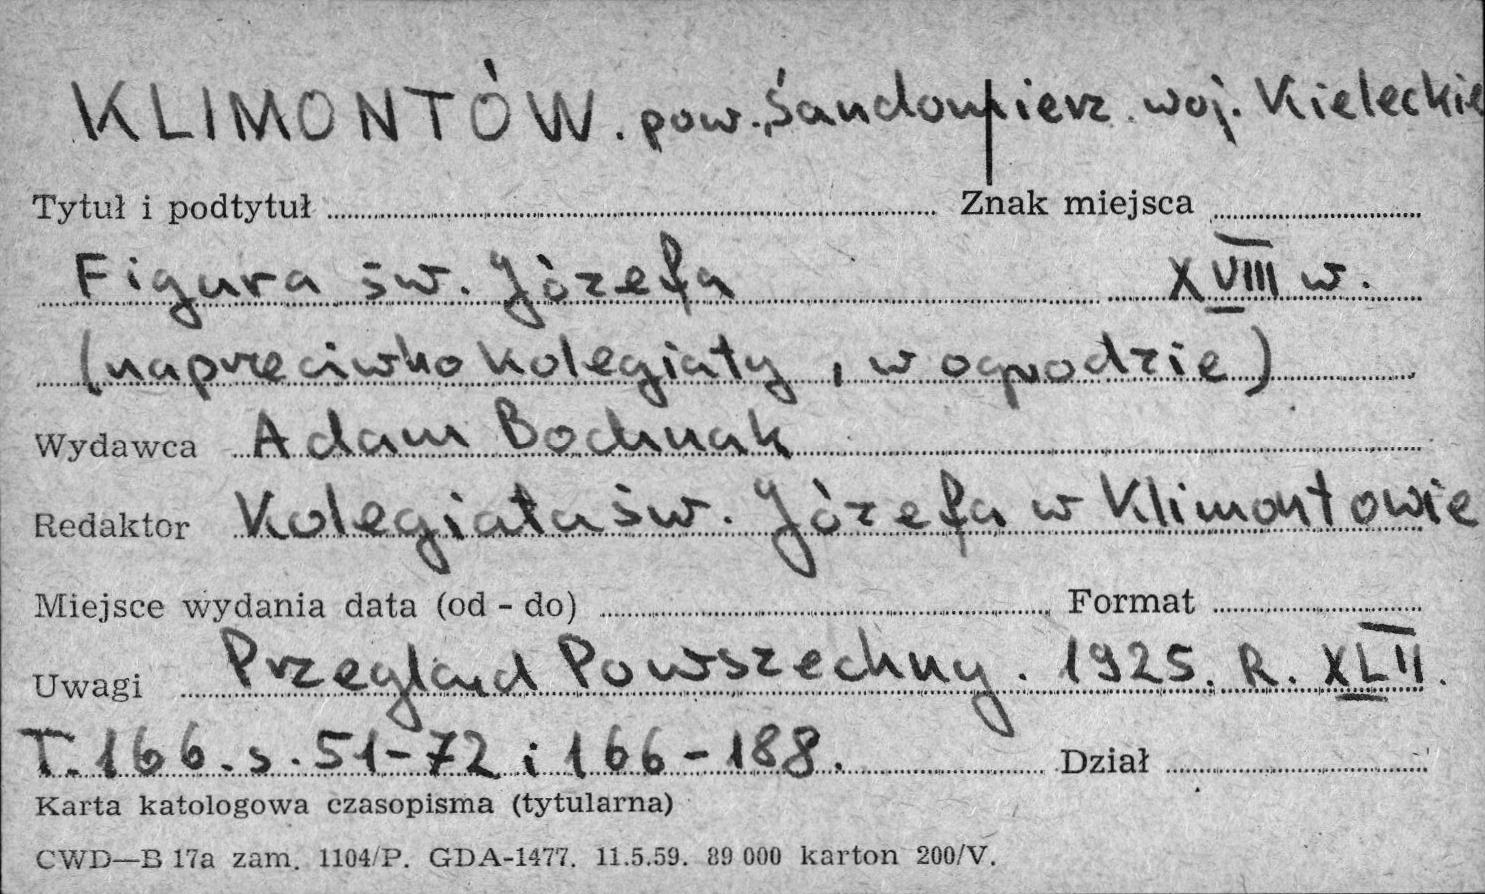 KLIMONTÓW. pow. Sandomierz. woj. Kieleckie
Tytuł i podtytuł Znak miejsca
Figura św. Józefa XVIII w.
(naprzeciwko kolegiaty, w ogrodzie)
Wydawca Adam Bochnak
Redaktor Kolegiata św. Józefa w Klimontowie
Miejsce wydania data (od - do) Format
Uwagi Przegląd Powszechny. 1925. R. XLII.
T. 166. s. 51-72 i 166-188. Dział
Karta katologowa czasopisma (tytularna)
CWD—B 17a zam. 1104/P. GDA-1477. 11.5.59. 89 000 karton 200/V.